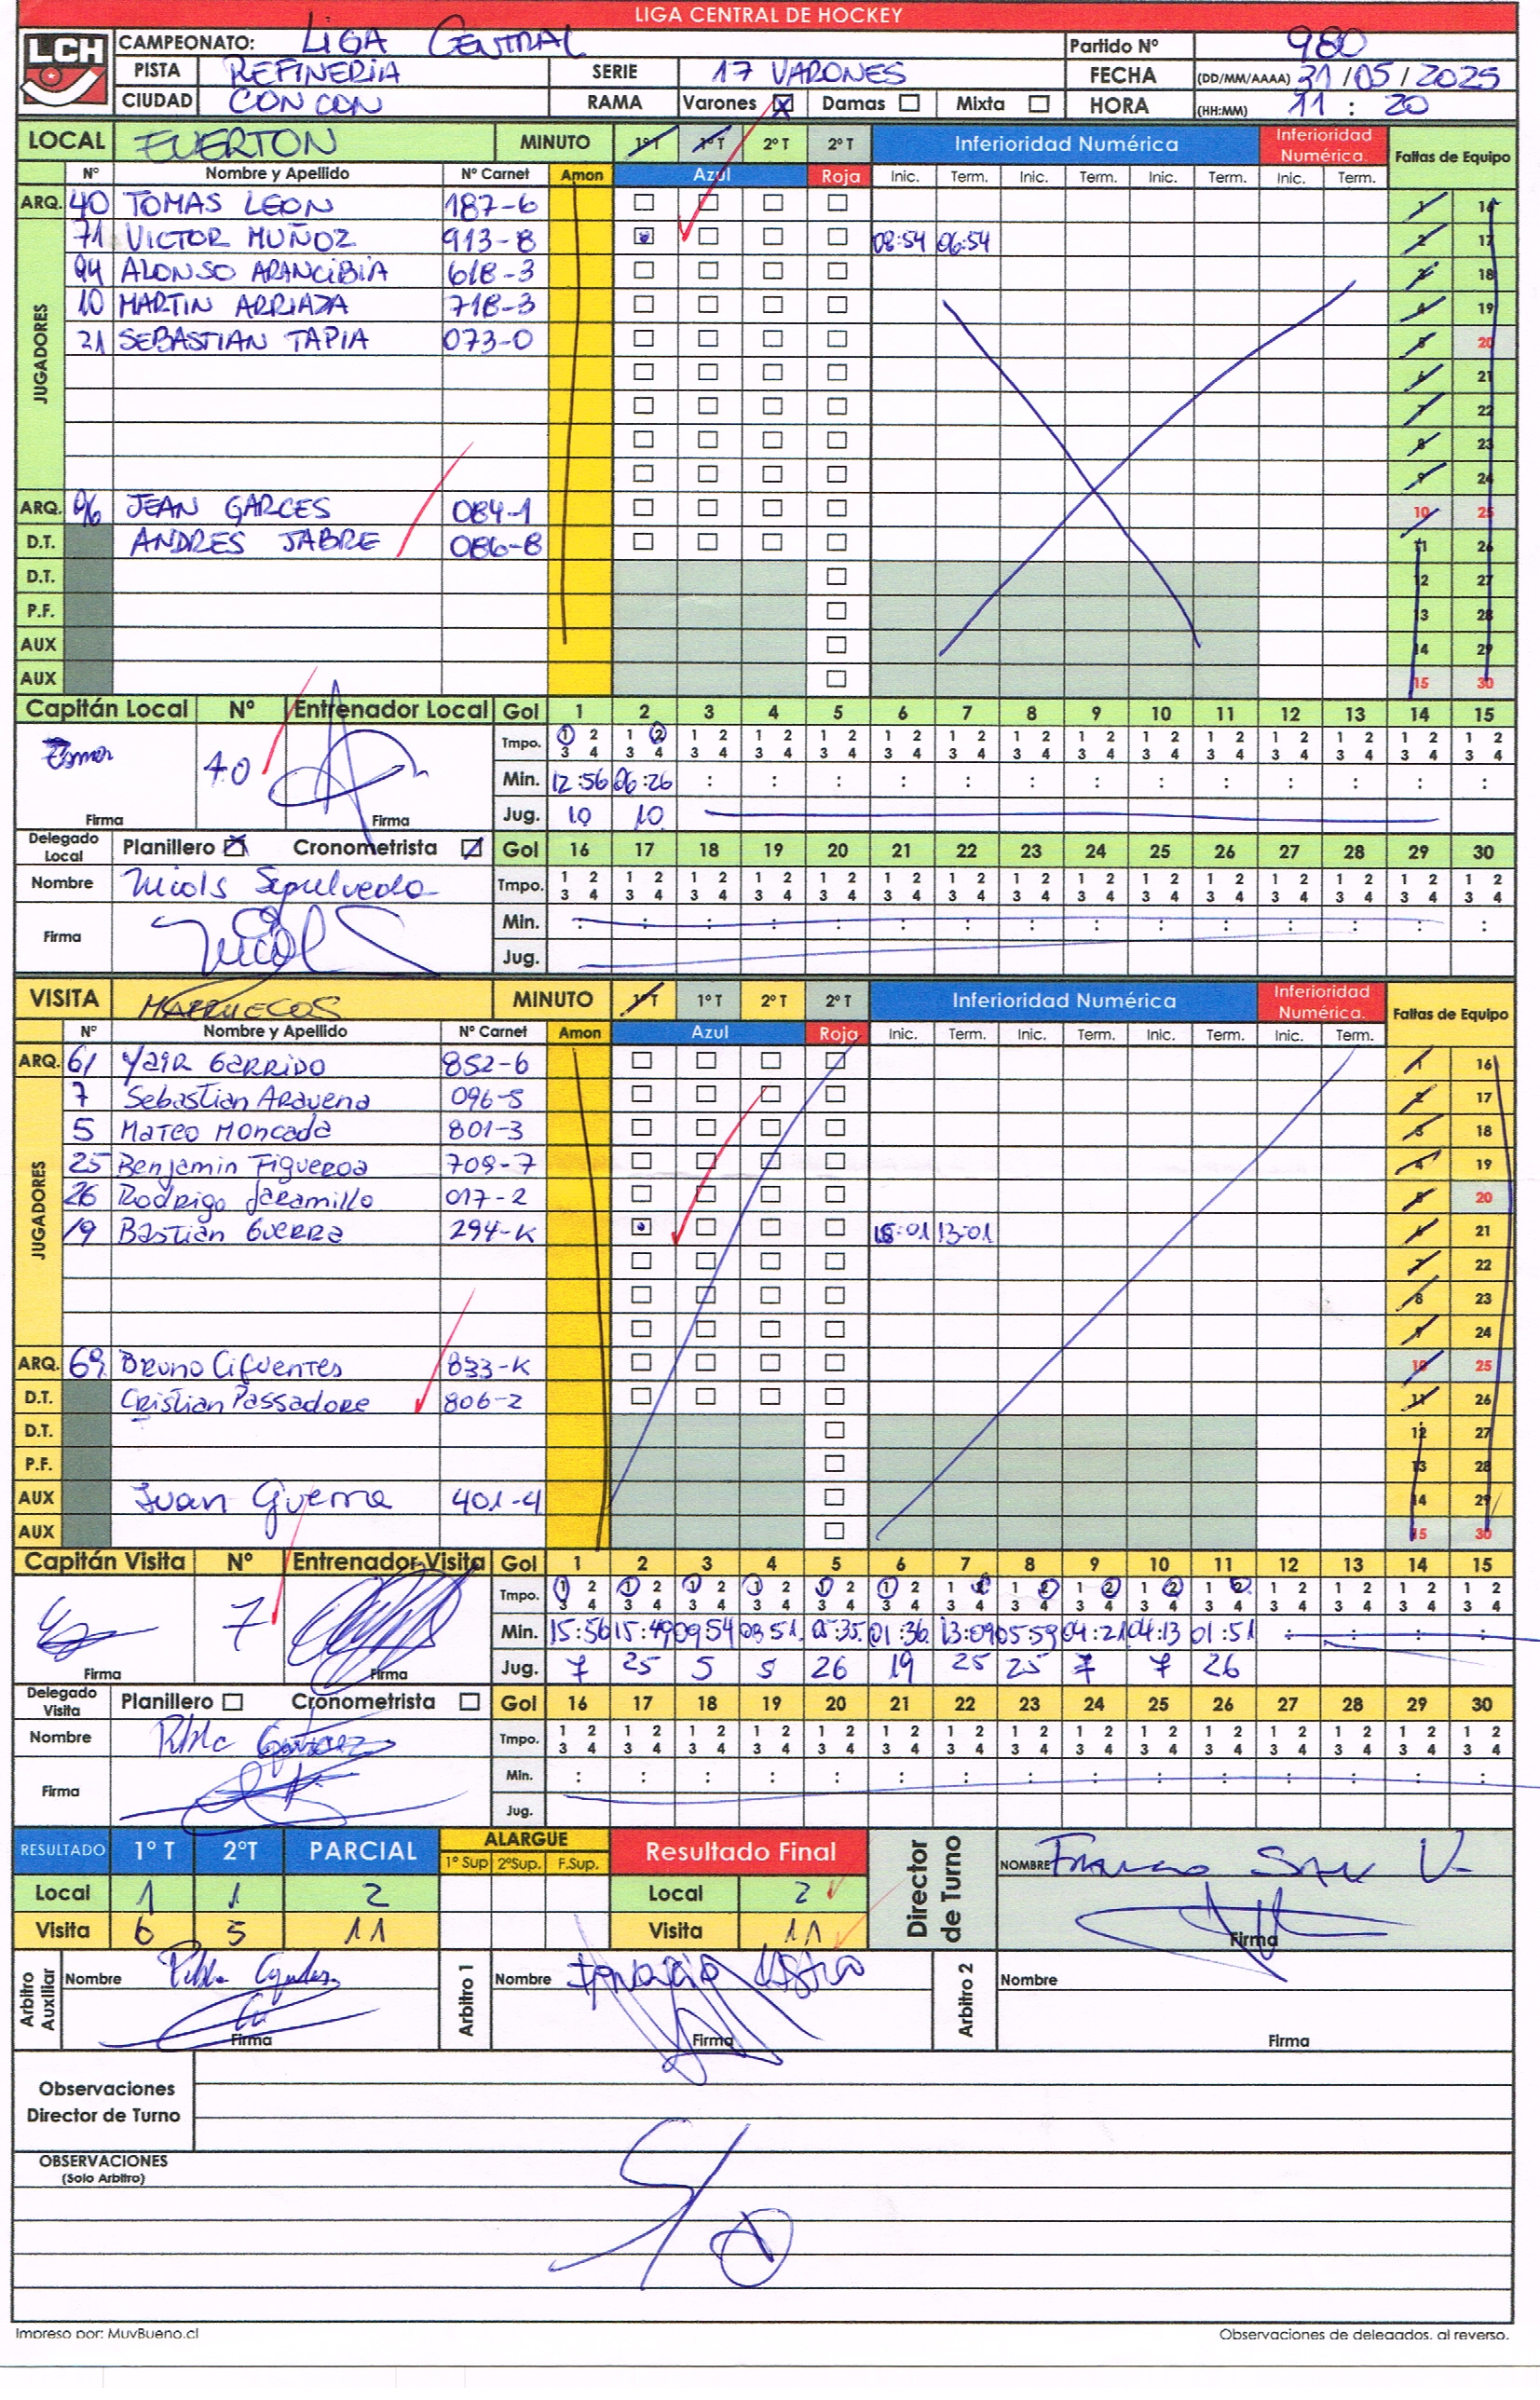 LIGA CENTRAL DE HOCKEY
LCH CAMPEONATO: LIGA CENTRAL Partido Nº 980
PISTA REFINERIA SERIE 17 VARONES FECHA (DD/MM/AAAA) 31/05/2025
CIUDAD CON CON RAMA Varones Damas Mixta HORA (HH:MM) 11:20
LOCAL EVERTON MINUTO 1º T 1º T 2º T 2º T Inferioridad Numérica Inferioridad Numérica. Faltas de Equipo
Nº Nombre y Apellido Nº Carnet Amon Azul Roja Inic. Term. Inic. Term. Inic. Term. Inic. Term.
ARQ. 40 TOMAS LEON 187-6 1 16
JUGADORES
71 VICTOR MUÑOZ 913-8 08:54 06:54 2 17
94 ALONSO ARANCIBIA 618-3 3 18
10 MARTIN ARRIAZA 718-3 4 19
21 SEBASTIAN TAPIA 073-0 5 20
6 21
7 22
8 23
9 24
ARQ. 96 JEAN GARCES 084-1 10 25
D.T. ANDRES JABRE 086-8 11 26
D.T. 12 27
P.F. 13 28
AUX 14 29
AUX 15 30
Capitán Local Nº Entrenador Local Gol 1 2 3 4 5 6 7 8 9 10 11 12 13 14 15
Tmpo. 1 2 1 2 1 2 1 2 1 2 1 2 1 2 1 2 1 2 1 2 1 2 1 2 1 2 1 2 1 2
3 4 3 4 3 4 3 4 3 4 3 4 3 4 3 4 3 4 3 4 3 4 3 4 3 4 3 4 3 4
40 Min. 12:56 06:26 : : : : : : : : : : : : :
Firma Firma Jug. 10 10
Delegado Local Planillero Cronometrista Gol 16 17 18 19 20 21 22 23 24 25 26 27 28 29 30
Nombre Nicols Sepulveda Tmpo. 1 2 1 2 1 2 1 2 1 2 1 2 1 2 1 2 1 2 1 2 1 2 1 2 1 2 1 2 1 2
3 4 3 4 3 4 3 4 3 4 3 4 3 4 3 4 3 4 3 4 3 4 3 4 3 4 3 4 3 4
Firma Min. : : : : : : : : : : : : : : :
Jug.
VISITA MARRUECOS MINUTO 1º T 1º T 2º T 2º T Inferioridad Numérica Inferioridad Numérica. Faltas de Equipo
Nº Nombre y Apellido Nº Carnet Amon Azul Roja Inic. Term. Inic. Term. Inic. Term. Inic. Term.
ARQ. 61 YaiR GARRIDO 852-6 1 16
JUGADORES
7 Sebastian Aravena 096-5 2 17
5 Mateo Moncada 801-3 3 18
25 Benjamin Figueroa 709-7 4 19
26 Rodrigo Jaramillo 017-2 5 20
19 Bastian Guerra 294-K 15:01 13:01 6 21
7 22
8 23
9 24
ARQ. 69 Bruno Cifuentes 833-K 10 25
D.T. Cristian Passadore 806-2 11 26
D.T. 12 27
P.F. 13 28
AUX Juan Guerra 401-4 14 29
AUX 15 30
Capitán Visita Nº Entrenador Visita Gol 1 2 3 4 5 6 7 8 9 10 11 12 13 14 15
Tmpo. 1 2 1 2 1 2 1 2 1 2 1 2 1 2 1 2 1 2 1 2 1 2 1 2 1 2 1 2 1 2
3 4 3 4 3 4 3 4 3 4 3 4 3 4 3 4 3 4 3 4 3 4 3 4 3 4 3 4 3 4
7 Min. 15:56 15:49 09:54 08:51 05:35 01:36 13:09 05:59 04:21 04:13 01:51 : : : :
Firma Firma Jug. 7 25 5 5 26 19 25 25 7 7 26
Delegado Visita Planillero Cronometrista Gol 16 17 18 19 20 21 22 23 24 25 26 27 28 29 30
Nombre Tmpo. 1 2 1 2 1 2 1 2 1 2 1 2 1 2 1 2 1 2 1 2 1 2 1 2 1 2 1 2 1 2
3 4 3 4 3 4 3 4 3 4 3 4 3 4 3 4 3 4 3 4 3 4 3 4 3 4 3 4 3 4
Firma Min. : : : : : : : : : : : : : : :
Jug.
RESULTADO 1º T 2ºT PARCIAL ALARGUE 1º Sup 2ºSup. F.Sup. Resultado Final Director de Turno NOMBRE Franco
Local 1 1 2 Local 2
Visita 6 5 11 Visita 11 Firma
Arbitro Auxiliar Nombre Arbitro 1 Nombre Ignacio Castro Arbitro 2 Nombre
Firma Firma Firma
Observaciones
Director de Turno
OBSERVACIONES
(Solo Arbitro)
S/O
Impreso por: MuyBueno.cl Observaciones de delegados, al reverso.